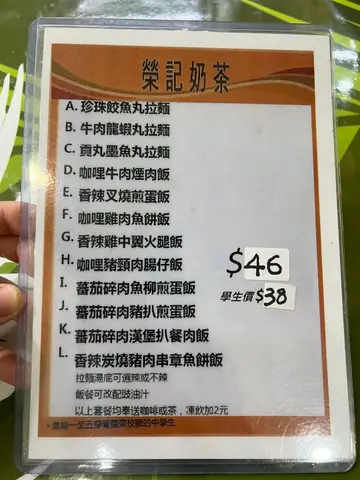 榮記奶茶
A. 珍珠餃魚丸拉麵
B. 牛肉龍蝦丸拉麵
C. 貢丸墨魚丸拉麵
D. 咖喱牛肉煙肉飯
E. 香辣叉燒煎蛋飯
F. 咖喱雞肉魚餅飯
G. 香辣雞中翼火腿飯
H. 咖喱豬頸肉腸仔飯
$46
I. 蕃茄碎肉魚柳煎蛋飯
學生價$38
J. 蕃茄碎肉豬扒煎蛋飯
K. 蕃茄碎肉漢堡扒餐肉飯
L. 香辣炭燒豬肉串章魚餅飯
拉麵湯底可選辣或不辣
飯餐可改配豉油汁
以上套餐均奉送咖啡或茶，凍飲加2元
*星期一至五穿著整齊校服的中學生